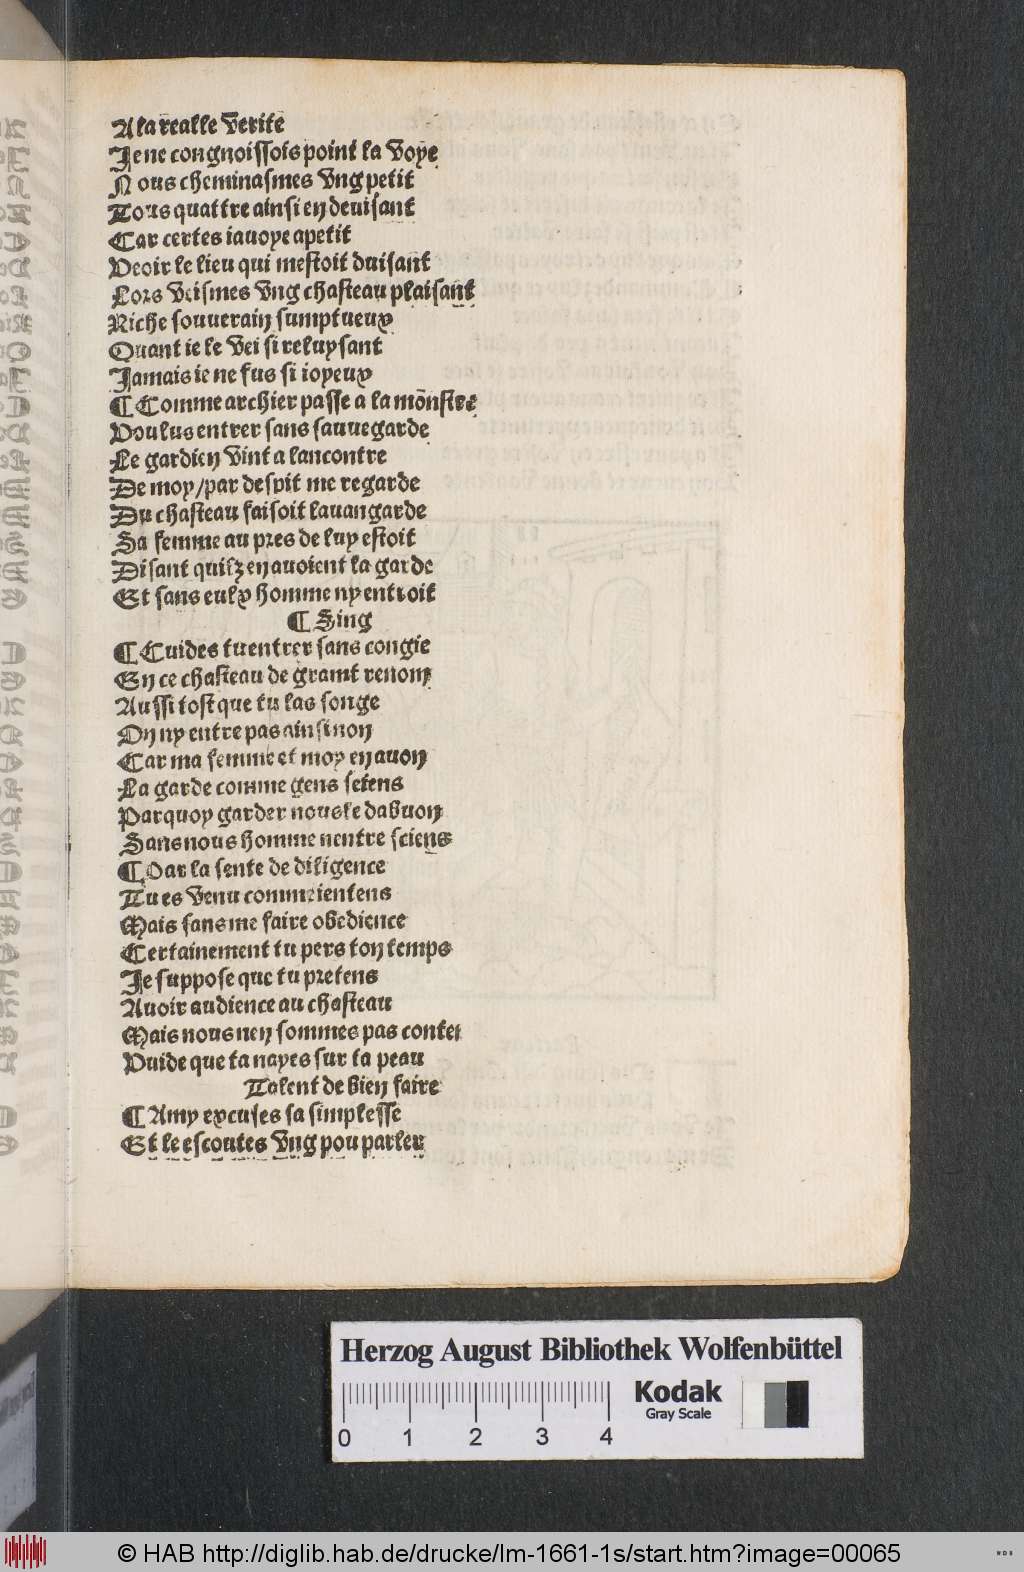 A la realle verite
Je ne congnoissois point la voye
Nous cheminasmes vng petit
Tous quattre ainsi en deuisant
Car certes iauoye apetit
Veoir le lieu qui mestoit duisant
Lors veismes vng chasteau plaisant
Riche souuerain sumptueux
Quant ie le vei si reluysant
Jamais ie ne fus si ioyeux
¶ Comme archier passe a la mõnstre
Voulus entrer sans sauuegarde
Le gardien vint a lancontre
De moy / par despit me regarde
Du chasteau faisoit lauangarde
Sa femme au pres de luy estoit
Disant quilz en auoient la garde
Et sans eulx homme ny entroit
¶ Sing
¶ Cuides tu entrer sans congie
En ce chasteau de gramt renom
Aussi tost que tu las songe
On ny entre pas ainsi non
Car ma femme et moy en auon
La garde comme gens seiens
Parquoy garder nous le dabuon
Sans nous homme nentre sciens
¶ Par la sente de diligence
Tu es venu comme ientens
Mais sans me faire obedience
Certainement tu pers ton temps
Je suppose que tu pretens
Auoir audience au chasteau
Mais nous nen sommes pas contet
Vuide que ta nayes sur ta peau
Talent de bien faire
¶ Amy excuses sa simplesse
Et le escoutes vng pou parler
Herzog August Bibliothek Wolfenbüttel
Kodak
Gray Scale
0 1 2 3 4
© HAB http://diglib.hab.de/drucke/lm-1661-1s/start.htm?image=00065